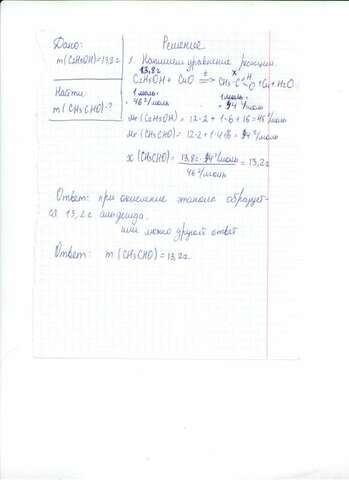 Дано:
m(C2H5OH)=13,8г
Найти:
m(CH3CHO)-?
Решение
1. Напишем уравнение реакции.
13,8г x
C2H5OH + CuO t⟹ CH3-C H O +Cu+H2O
1моль 1моль
46 г/моль 44 г/моль
Mr(C2H5OH) = 12·2 + 1·6 + 16 =46 г/моль
Mr(CH3CHO) = 12·2+1·4+16 = 44 г/моль
x(CH3CHO) = 13,8г·44 г/моль / 46 г/моль = 13,2г
Ответ: при окислении этанола образует-
ся 13,2г альдегида.
или можно другой ответ
Ответ: m(CH3CHO)=13,2г.